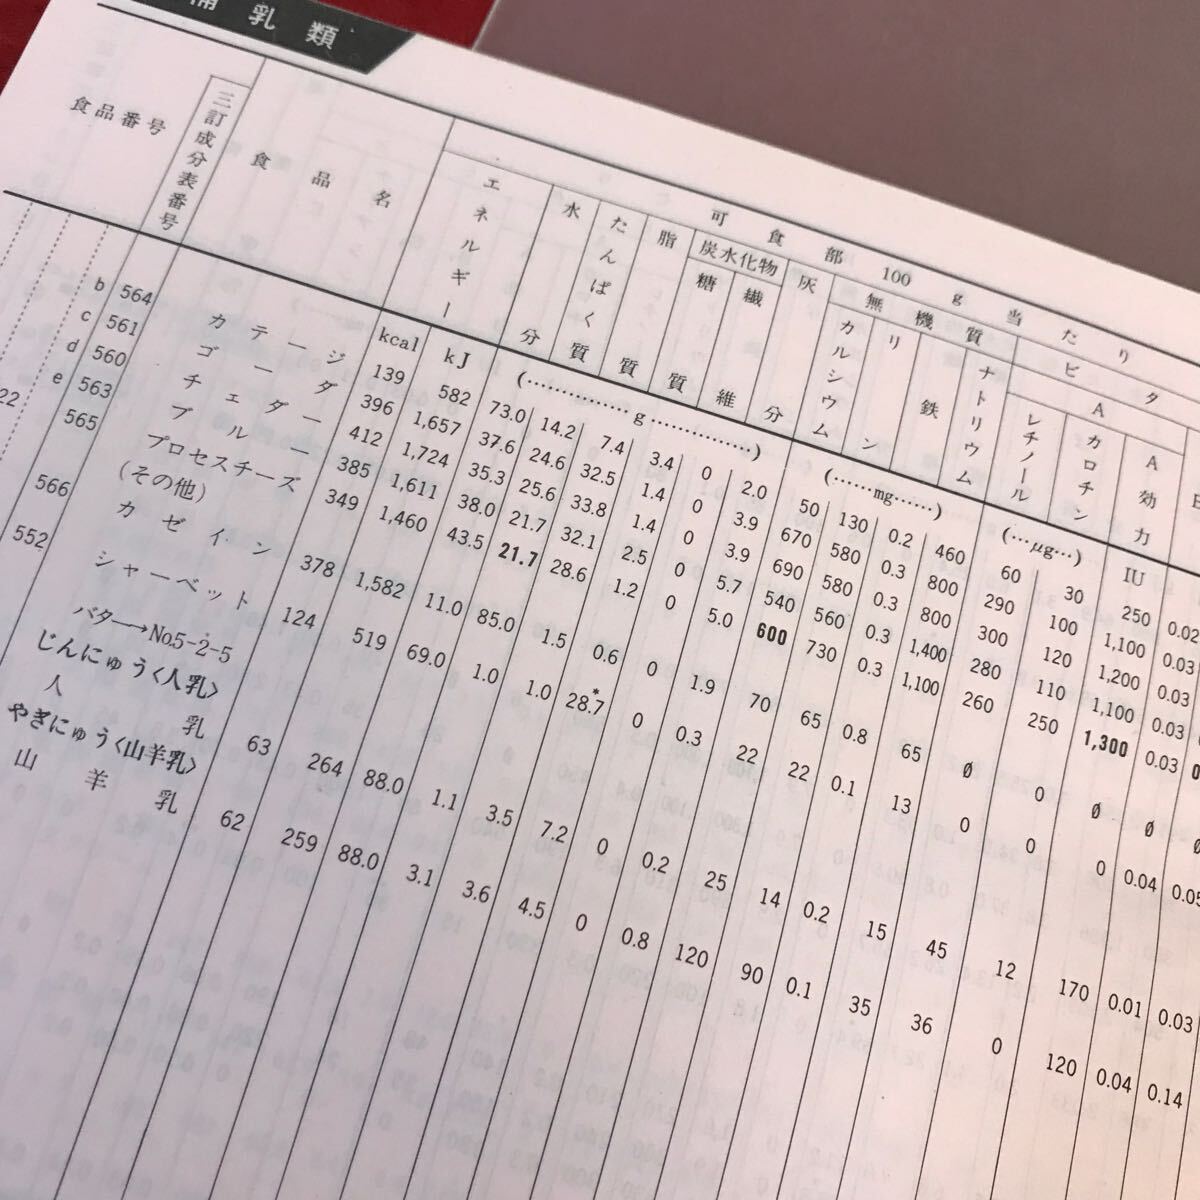 乳類
食品番号
三訂成分表番号
食品名
可食部 100 g 当たり
エネルギー
水分
たんぱく質
脂質
炭水化物
糖質
繊維
灰分
無機質
カルシウム
リン
鉄
ナトリウム
ビタ
A
レチノール
カロチン
A効力
kcal kJ (…………g…………) (……mg……) (…μg…) IU
b 564 カテージ 139 582 73.0 14.2 7.4 3.4 0 2.0 50 130 0.2 460 60 30 250 0.02
c 561 ゴーダ 396 1,657 37.6 24.6 32.5 1.4 0 3.9 670 580 0.3 800 290 100 1,100 0.03
d 560 チェダー 412 1,724 35.3 25.6 33.8 1.4 0 3.9 690 580 0.3 800 300 120 1,200 0.03
e 563 ブルー 385 1,611 38.0 21.7 32.1 2.5 0 5.7 540 560 0.3 1,400 280 110 1,100 0.03
22 565 プロセスチーズ 349 1,460 43.5 21.7 28.6 1.2 0 5.0 600 730 0.3 1,100 260 250 1,300 0.03
(その他)
566 カゼイン 378 1,582 11.0 85.0 1.5 0.6 0 1.9 70 65 0.8 65 φ 0 φ φ φ
552 シャーベット 124 519 69.0 1.0 1.0 *28.7 0 0.3 22 22 0.1 13 0 0 0 0.04 0.05
バター→No.5-2-5
じんにゅう〈人乳〉
人乳 63 264 88.0 1.1 3.5 7.2 0 0.2 25 14 0.2 15 45 12 170 0.01 0.03
やぎにゅう〈山羊乳〉
山羊乳 62 259 88.0 3.1 3.6 4.5 0 0.8 120 90 0.1 35 36 0 120 0.04 0.14